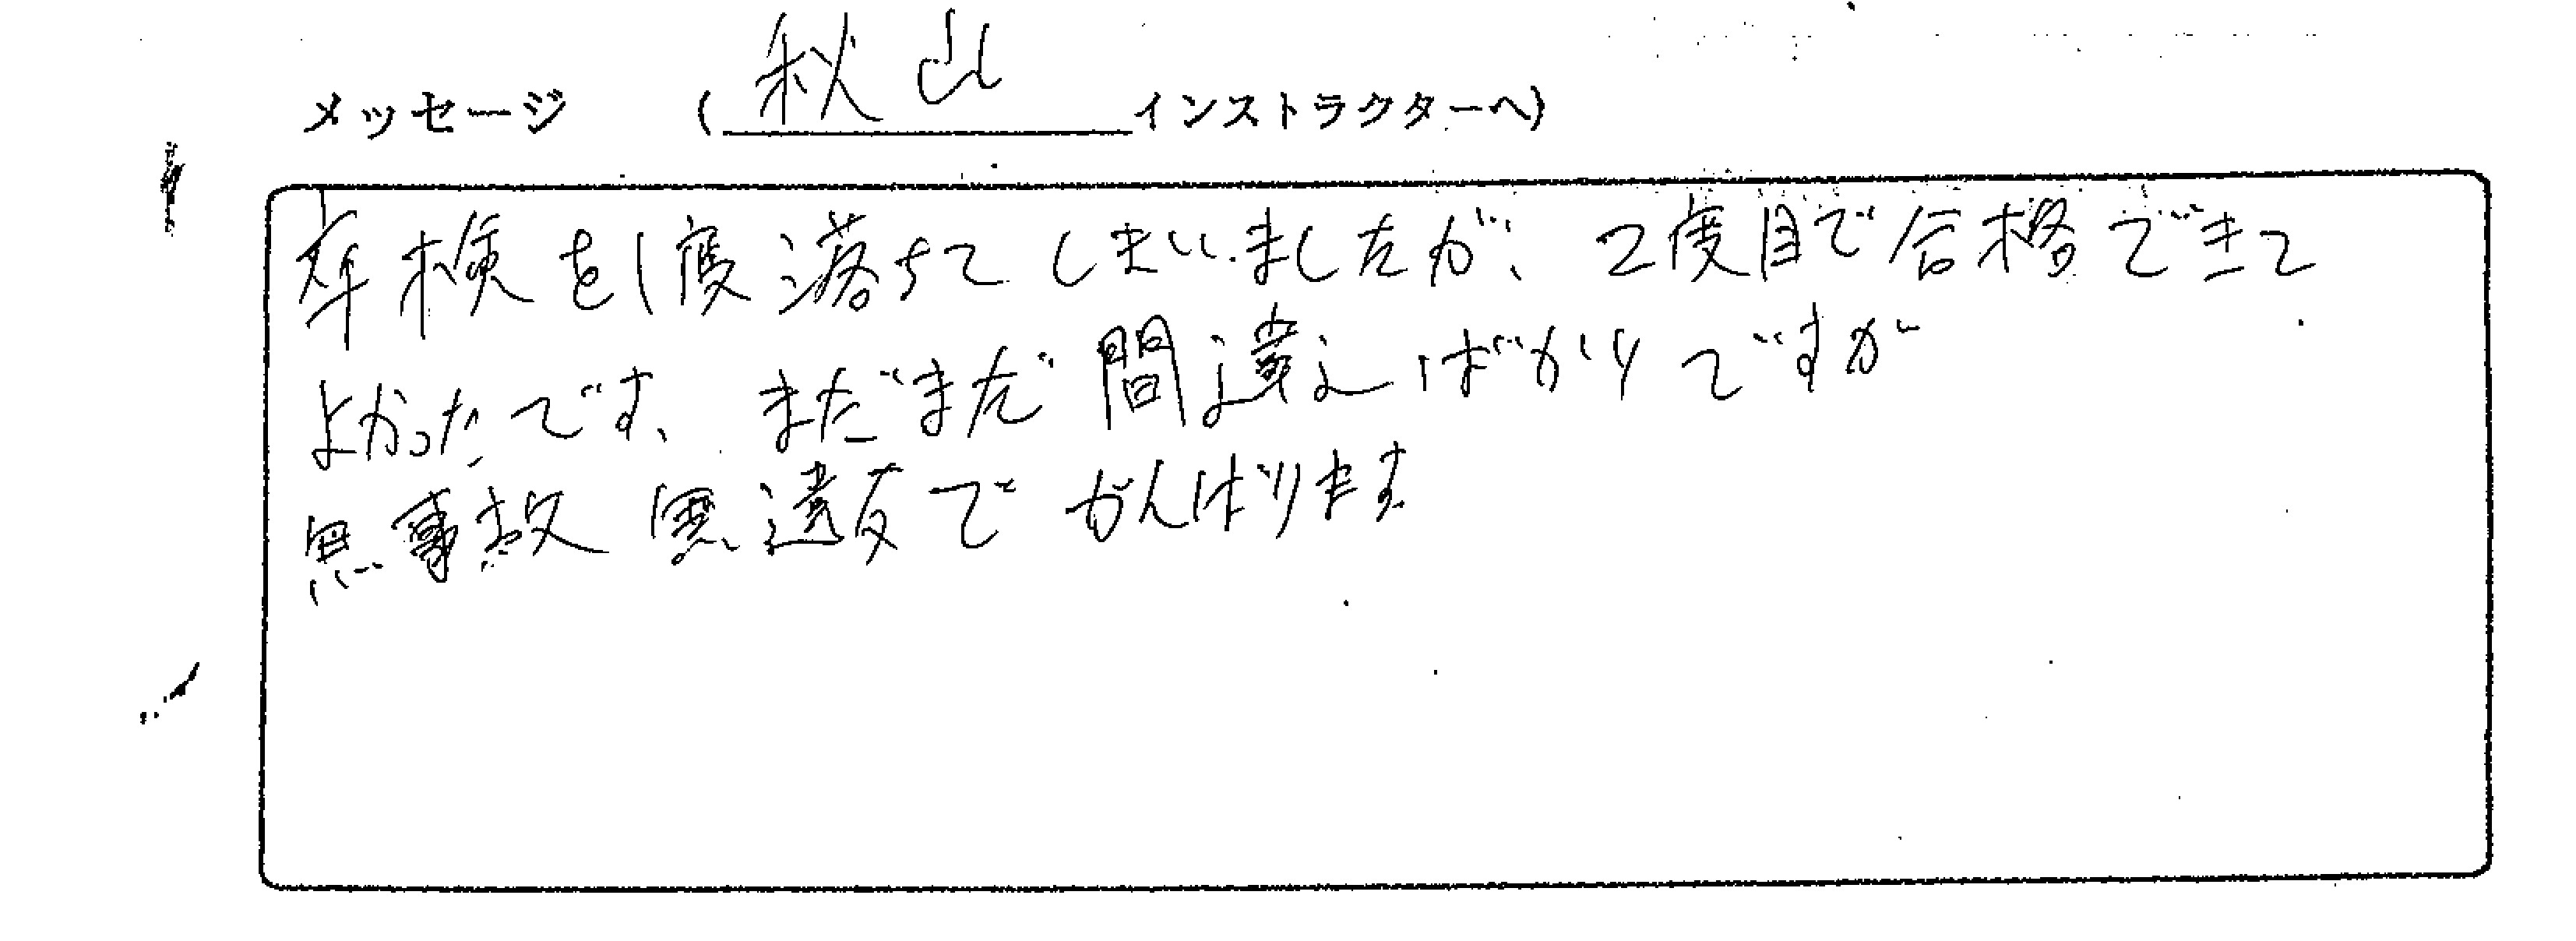 メッセージ （秋山インストラクターへ）
卒検を1度落ちてしまいましたが、2度目で合格できて
よかったです。まだまだ間違えばかりですが
無事故無違反でがんばります